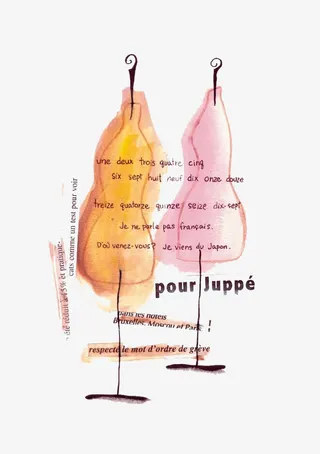 une deux trois quatre cinq
six sept huit neuf dix onze douze
treize quatorze quinze seize dix-sept
Je ne parle pas français.
D'où venez-vous? Je viens du Japon.
pour Juppé
dans ses
Bruxelles, Moscou et Paris !
respecté le mot d'ordre de grève
cats comme un test pour voir
été réduit à 5% et pratique-